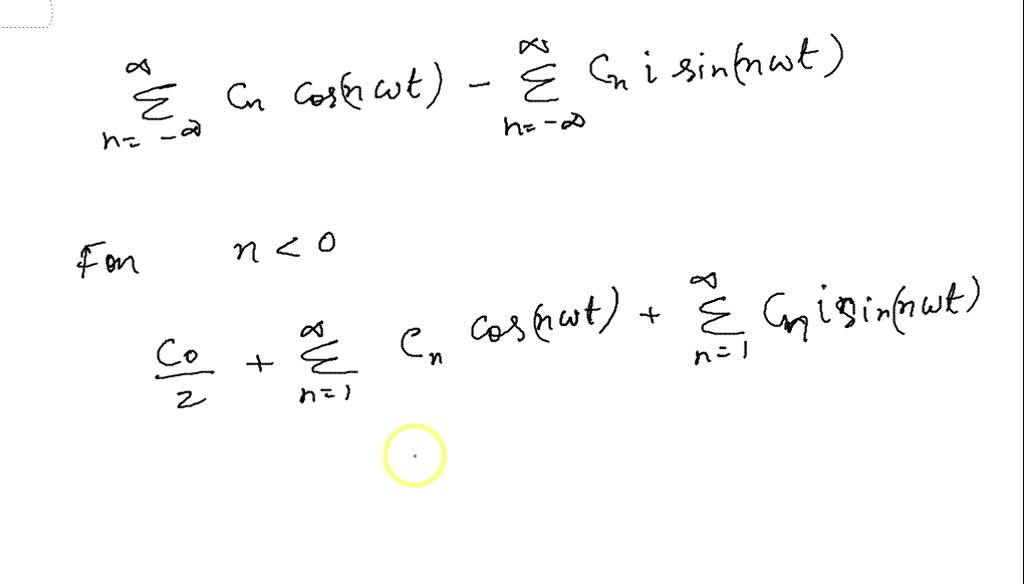 ∞ ∑ n=-∞ Cn cos(nωt) - ∞ ∑ n=-∞ Cn i sin(nωt)
For n < 0
C0/2 + ∞ ∑ n=1 Cn cos(nωt) + ∞ ∑ n=1 Cn i sin(nωt)